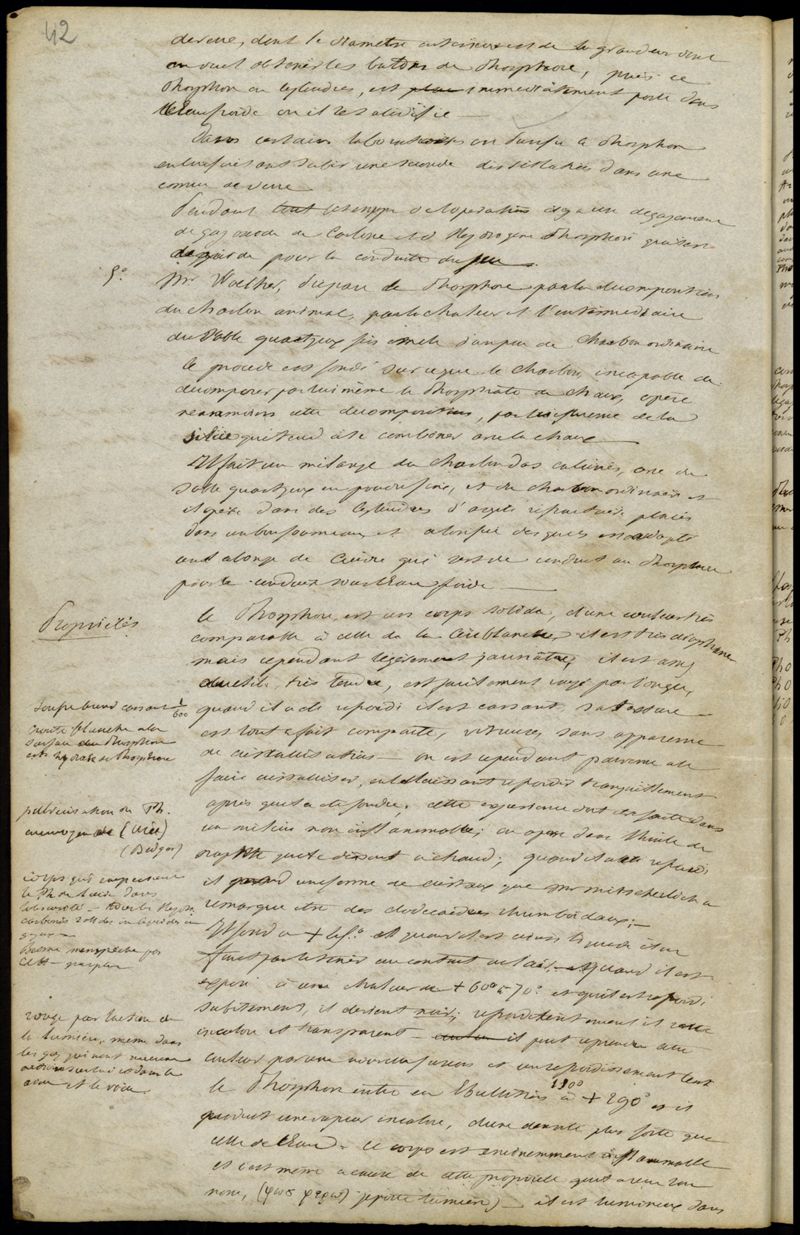 42
de verre, dont le diametre interieur est de la grandeur dont
on veut obtenir les batons de Phosphore, puis ce
Phosphore en cylindres, est immediatement porté dans
l'Eau froide ou il se solidifie —
Dans certains laboratoires on purifie le Phosphore
en lui faisant subir une seconde distillation dans une
cornue de verre
Pendant tout le temps de l'operation il y a un degagement
de gaz oxide de Carbone et d'Hydrogene Phosphoré qui sert
de guide pour la conduite du feu.
5°
Mr Wœlher, prepare le Phosphore par la decomposition
du charbon animal, par la chaleur et l'intermediaire
du Sable quartzeux fin et mele d'un peu de Charbon ordinaire
le procedé est fondé sur ce que le charbon, incapable de
decomposer par lui même le Phosphate de chaux, opere
neanmoins cette decomposition, par la presence de la
silice qui tend à se combiner avec la chaux
Il fait un mélange du charbon d'os calcinés, avec du
sable quartzeux en poudre fine, et du charbon ordinaire et
il opere dans des Cylindres d'argile refractaire placés
dans un bon fourneau et aux quels est adapté
une alonge de Cuivre qui sert de conduit au Phosphore
pour le conduire sous l'Eau froide —
Propriétés
le Phosphore, est un corps solide, d'une couleur très
comparable à celle de la Cire blanche, il est très diaphane
mais cependant légèrement jaunâtre, il est assez
ductile, très tendre, est facilement rayé par l'ongle,
Soufre le rend cassant 1/600
quand il a été refroidi il est cassant, sa texture
croute blanche a la
surface du Phosphore
est hydrate de Phosphore
est tout a fait compacte, vitreuse, sans apparence
de cristallisation — on est cependant parvenu a le
faire cristalliser, en le laissant refroidir tranquillement
pulverisation du Ph.
au moyen de (Urée)
(Bodgas)
après qu'il a été fondu; cette experience doit etre faite dans
un milieu non inflammable; on opere dans l'huile de
naphte qui le dissout à chaud; quand il a été refroidi
corps qui empechent
le Ph. de luire dans
l'obscurité
il prend une forme de cristaux que Mr Mitscherlich a
remarqué etre des dodecaedres rhumboïdaux; —
Il fond a + 43° et quand il est ainsi liquide il ne
faut pas le tenir au contact de l'air; — Quand il est
exposé à une chaleur de + 60° a 70° et qu'il est refroidi
subitement, il devient noir; refroidi lentement il reste
rouge par l'action de
la lumière, meme dans
les gaz qui n'ont aucune
action sur lui et dans le
vide
incolore et transparent — il peut reprendre cette
couleur par une nouvelle fusion et un refroidissement lent
le Phosphore entre en Ebullition à + 290° et il
produit une vapeur incolore, d'une densité plus forte que
celle de l'Eau. Ce corps est eminemment inflammable
et c'est meme a cause de cette propriété qu'il a reçu son
nom, (φωσ φερω) je porte lumière) — il est lumineux dans